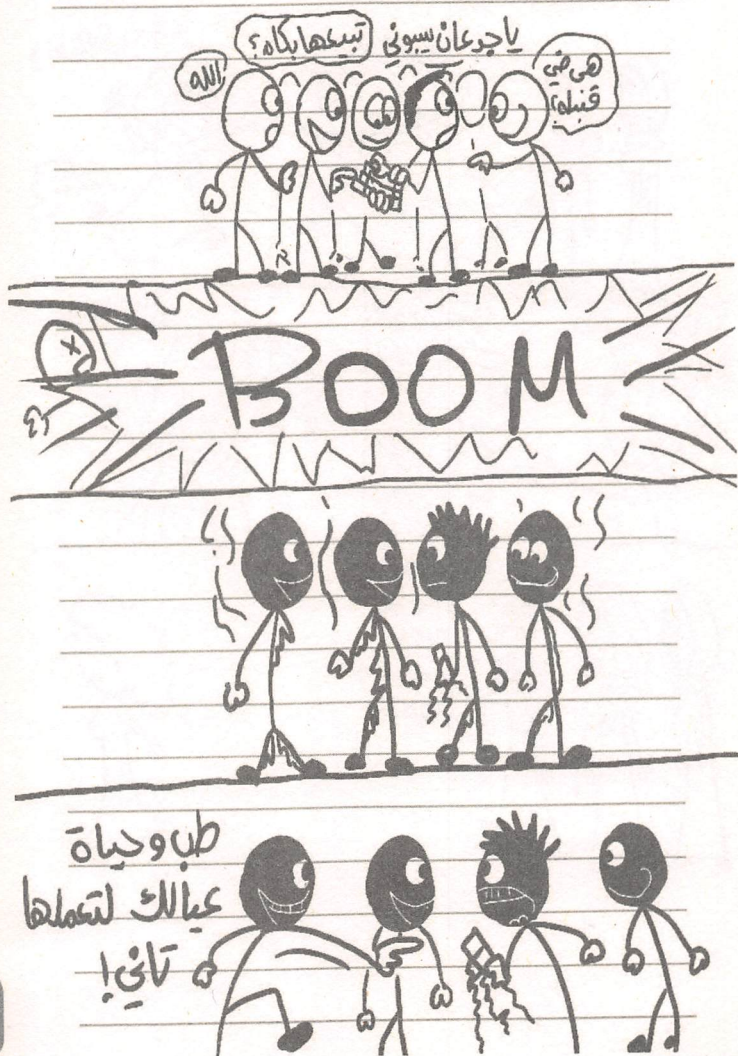 هي دي
قنبله؟
يا جدعان سيبوني
تبيعها بكام؟
الله!
BOOM
طب وحياة
عيالك لتعملها
تاني!